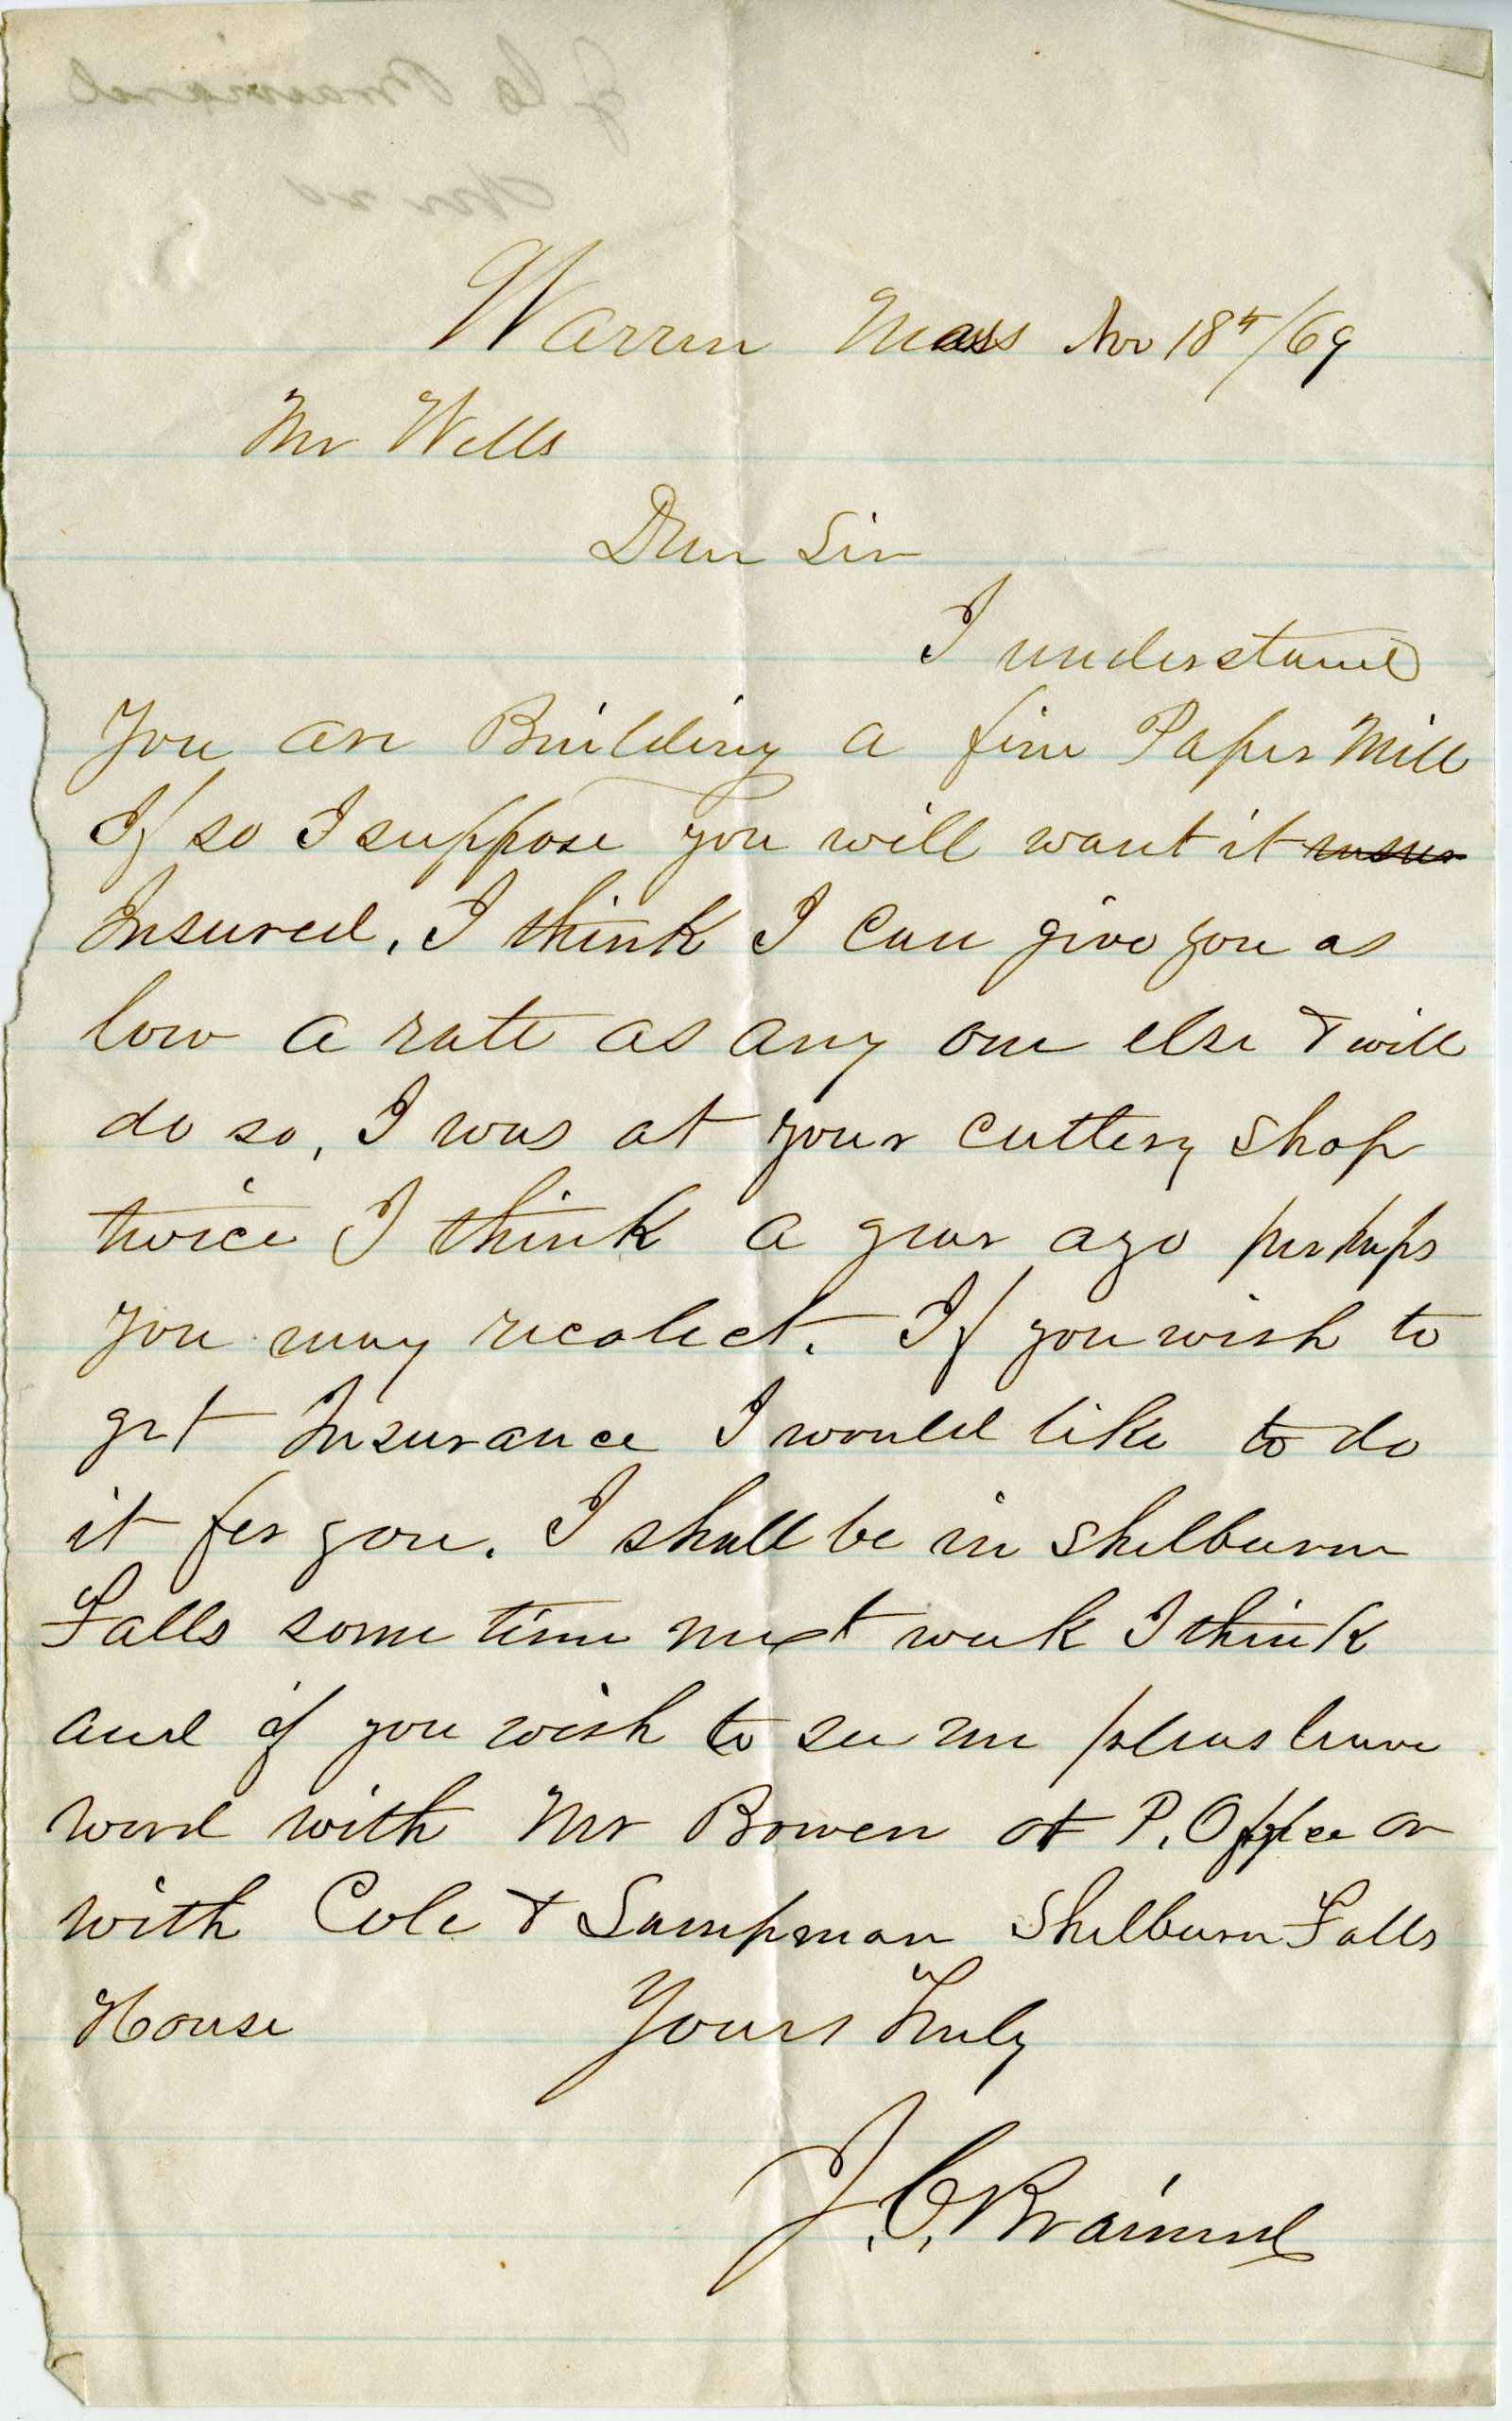 Warren Mass Nov 18th/69
Mr Wells
Dear Sir
I understand
You are Building a fine Paper Mill
If so I suppose you will want it
Insured, I think I Can give you as
low a rate as any one else & will
do so, I was at your cuttery shop
twice I think a year ago perhaps
you may recolect. If you wish to
get Insurance I would like to do
it for you. I shall be in Shelburn
Falls some time next week I think
and if you wish to see me pleas leave
word with Mr Bowen at P. Office or
with Cole & Sampman Shelburn Falls
House Yours Truly
J. C. Brainard